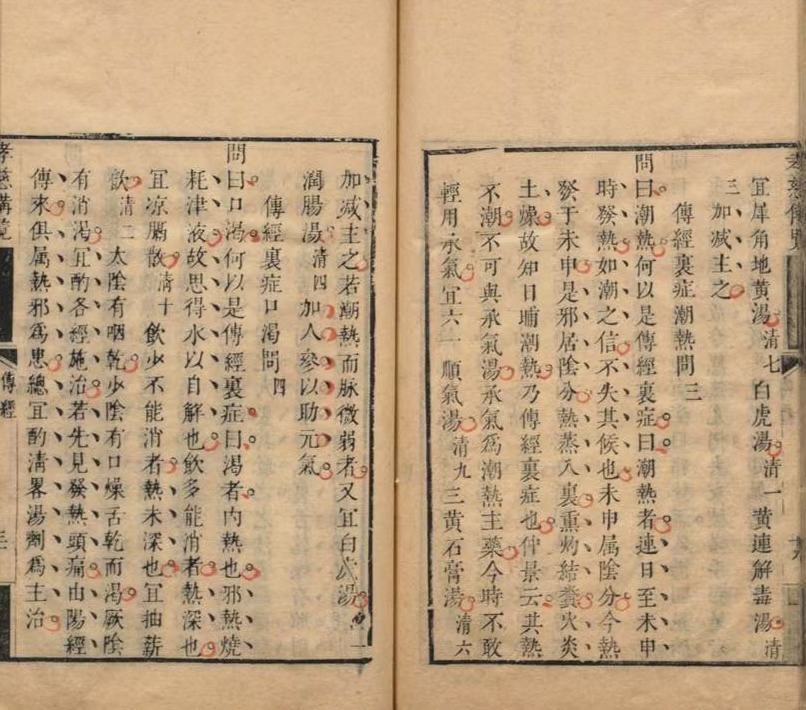 宜犀角地黄湯清七白虎湯清一黄連解毒湯清
三加减主之
傳經裏症潮熱問三
問曰潮熱何以是傳經裏症曰潮熱者連日至未申
時發熱如潮之信不失其候也未申属陰分今熱
發于未申是邪居陰分熱蒸入裏熏灼結糞火炎
土燥故知日晡潮熱乃傳經裏症也仲景云其熱
不潮不可與承氣湯承氣爲潮熱主藥今時不敢
輕用承氣宜六一順氣湯清九三黄石膏湯清六
加减主之若潮熱而脉微弱者又宜白虎湯一
潤腸湯清四加人參以助元氣
傳經裏症口渴問四
問曰口渴何以是傳經裏症曰渴者内熱也邪熱燒
耗津液故思得水以自解也飲多能消者熱深也
宜凉膈散清十飲少不能消者熱未深也宜抽薪
飲清二太陰有咽乾少陰有口燥舌乾而渴厥陰
有消渴宜酌各經施治若先見發熱頭痛由陽經
傳來俱属熱邪爲患總宜酌清畧湯劑爲主治
傳經